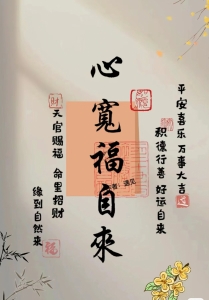 平安喜乐 万事大吉
积德行善 好运自来
心寬福自來
天官赐福 命里招财
缘到自然来
财
福